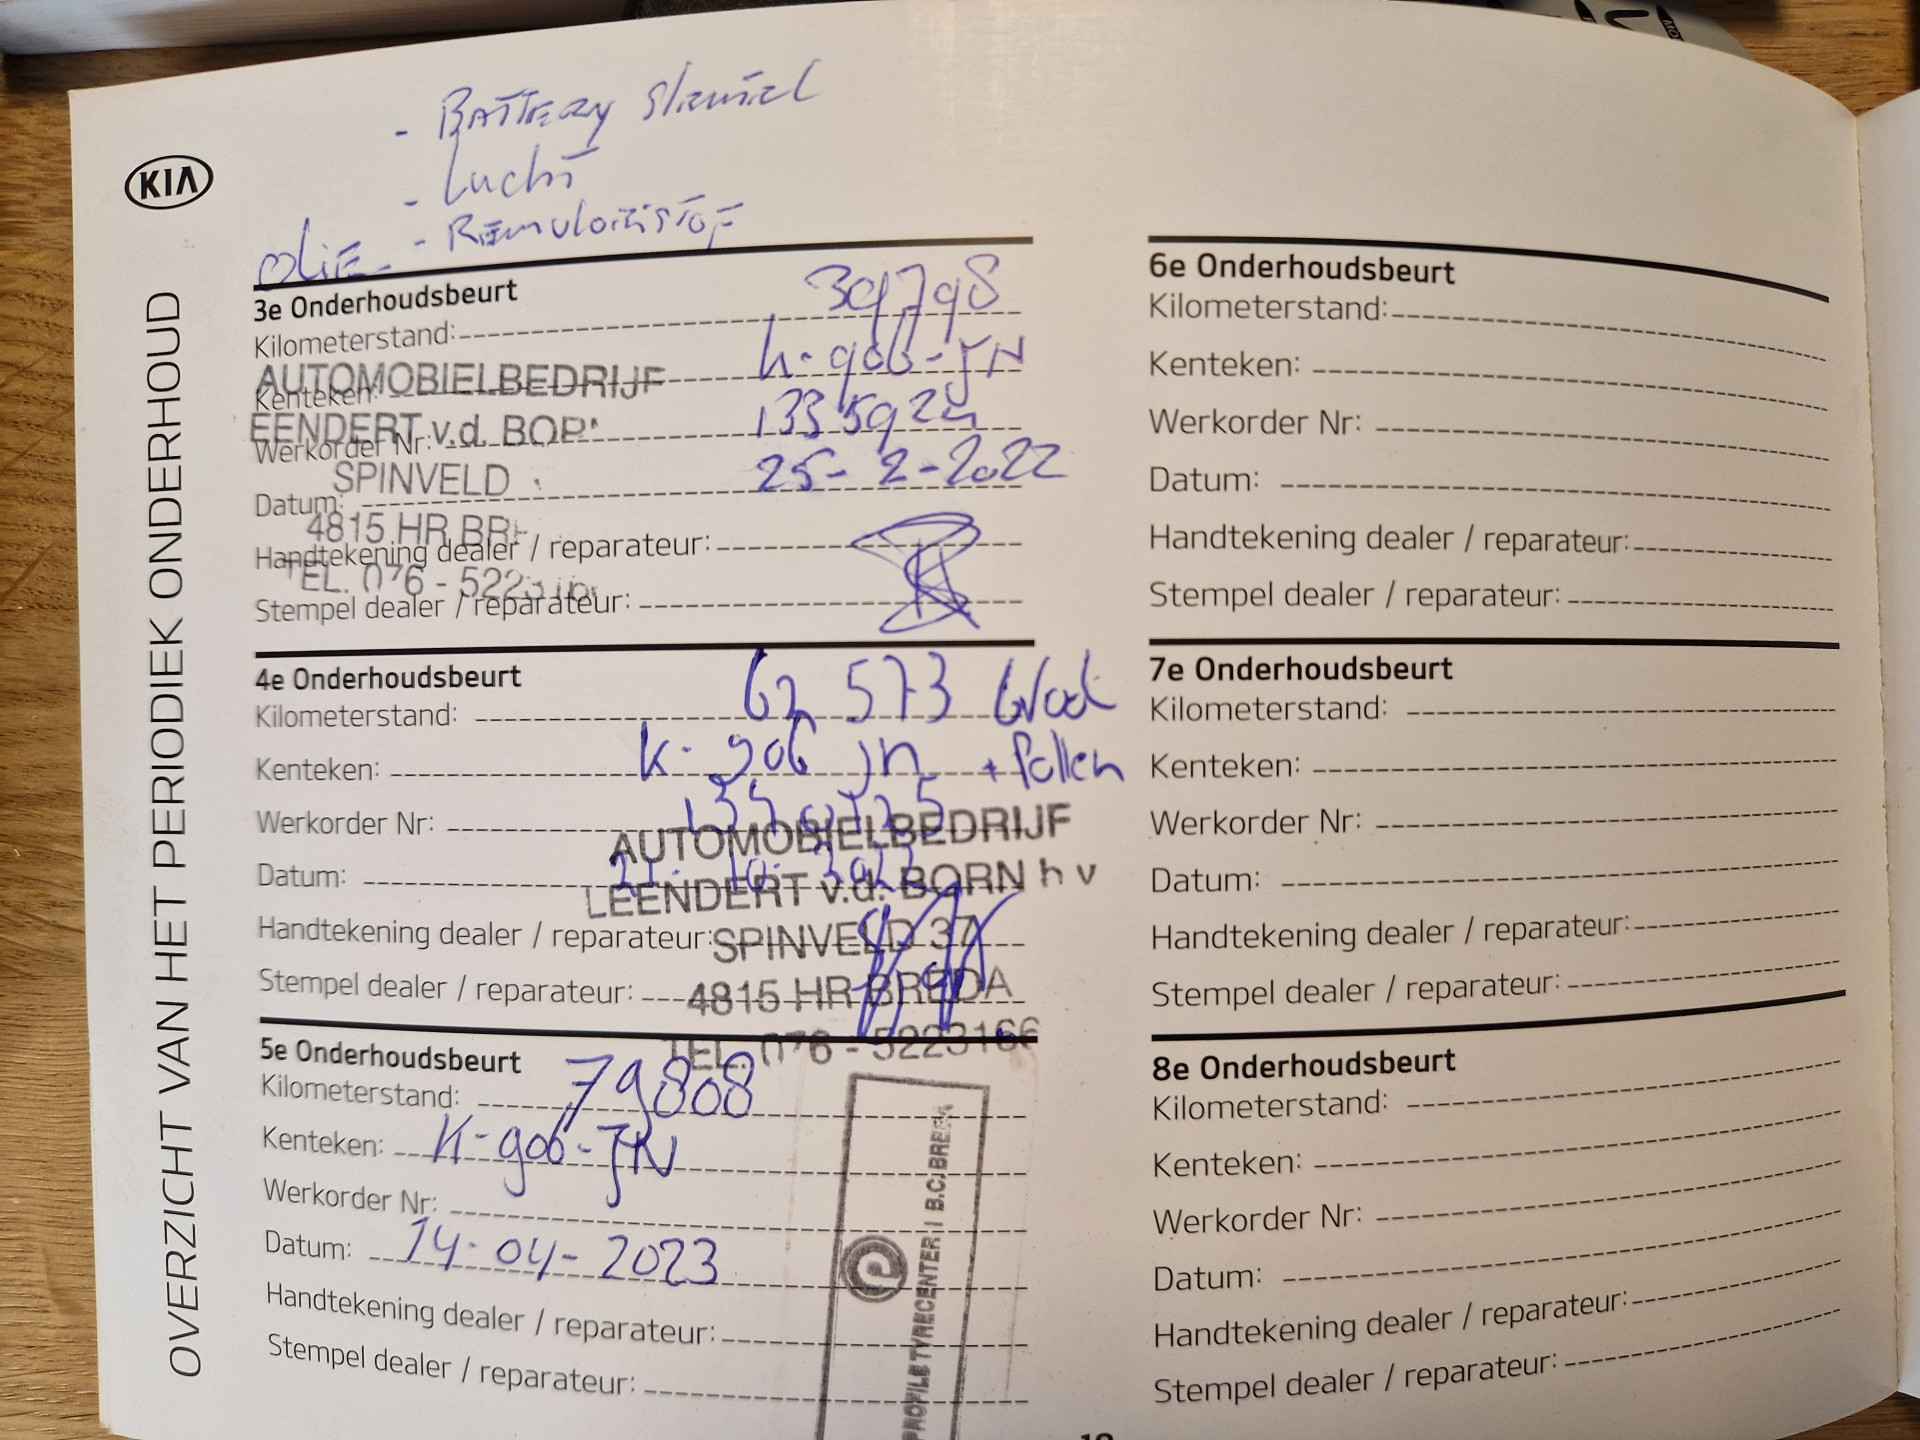 - BATTERY
- Lucht
OLIE - REMVLOEISTOF
KIA
OVERZICHT VAN HET PERIODIEK ONDERHOUD
3e Onderhoudsbeurt
Kilometerstand: 39798
Kenteken: K-906-JN
Werkorder Nr:
Datum: 25-2-2022
Handtekening dealer / reparateur:
Stempel dealer / reparateur:
AUTOMOBIELBEDRIJF
EENDERT v.d. BOR
SPINVELD
4815 HR BR
TEL. 076 - 5223
4e Onderhoudsbeurt
Kilometerstand: 62 573
Kenteken: K-906 JN + pollen
Werkorder Nr:
Datum:
Handtekening dealer / reparateur:
Stempel dealer / reparateur:
AUTOMOBIELBEDRIJF
LEENDERT v.d. BORN b v
SPINVELD 37
4815 HR BREDA
TEL. 076 - 5223166
5e Onderhoudsbeurt
Kilometerstand: 79808
Kenteken: K-906-JN
Werkorder Nr:
Datum: 14-04-2023
Handtekening dealer / reparateur:
Stempel dealer / reparateur:
PROFILE TYRECENTER I B.C. BREDA
6e Onderhoudsbeurt
Kilometerstand:
Kenteken:
Werkorder Nr:
Datum:
Handtekening dealer / reparateur:
Stempel dealer / reparateur:
7e Onderhoudsbeurt
Kilometerstand:
Kenteken:
Werkorder Nr:
Datum:
Handtekening dealer / reparateur:
Stempel dealer / reparateur:
8e Onderhoudsbeurt
Kilometerstand:
Kenteken:
Werkorder Nr:
Datum:
Handtekening dealer / reparateur:
Stempel dealer / reparateur: